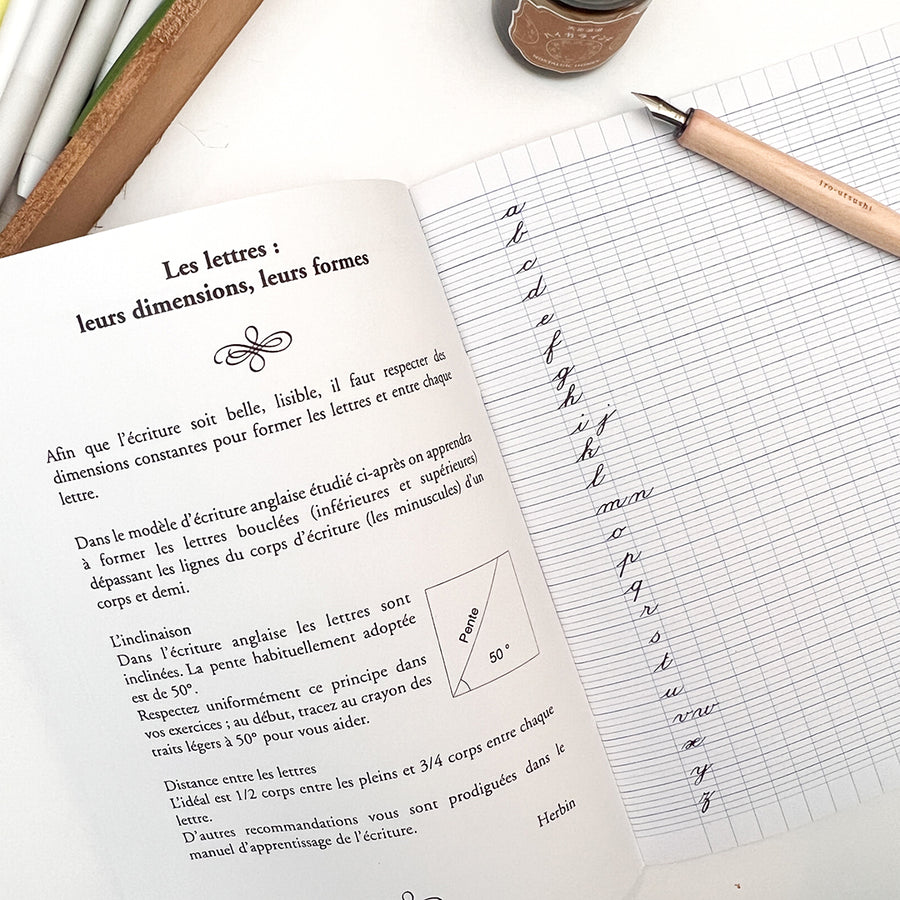 NOSTALGIC HONEY
iro-utsushi
Les lettres :
leurs dimensions, leurs formes
Afin que l’écriture soit belle, lisible, il faut respecter des
dimensions constantes pour former les lettres et entre chaque
lettre.
Dans le modèle d’écriture anglaise étudié ci-après on apprendra
à former les lettres bouclées (inférieures et supérieures)
dépassant les lignes du corps d’écriture (les minuscules) d’un
corps et demi.
L’inclinaison
Dans l’écriture anglaise les lettres sont
inclinées. La pente habituellement adoptée
est de 50°.
Respectez uniformément ce principe dans
vos exercices ; au début, tracez au crayon des
traits légers à 50° pour vous aider.
Pente
50°
Distance entre les lettres
L’idéal est 1/2 corps entre les pleins et 3/4 corps entre chaque
lettre.
D’autres recommandations vous sont prodiguées dans le
manuel d’apprentissage de l’écriture.
Herbin
a
b
c
d
e
f
g
h
i j
k
l
m n
o
p
q
r
s
t
u
v w
x
y
z